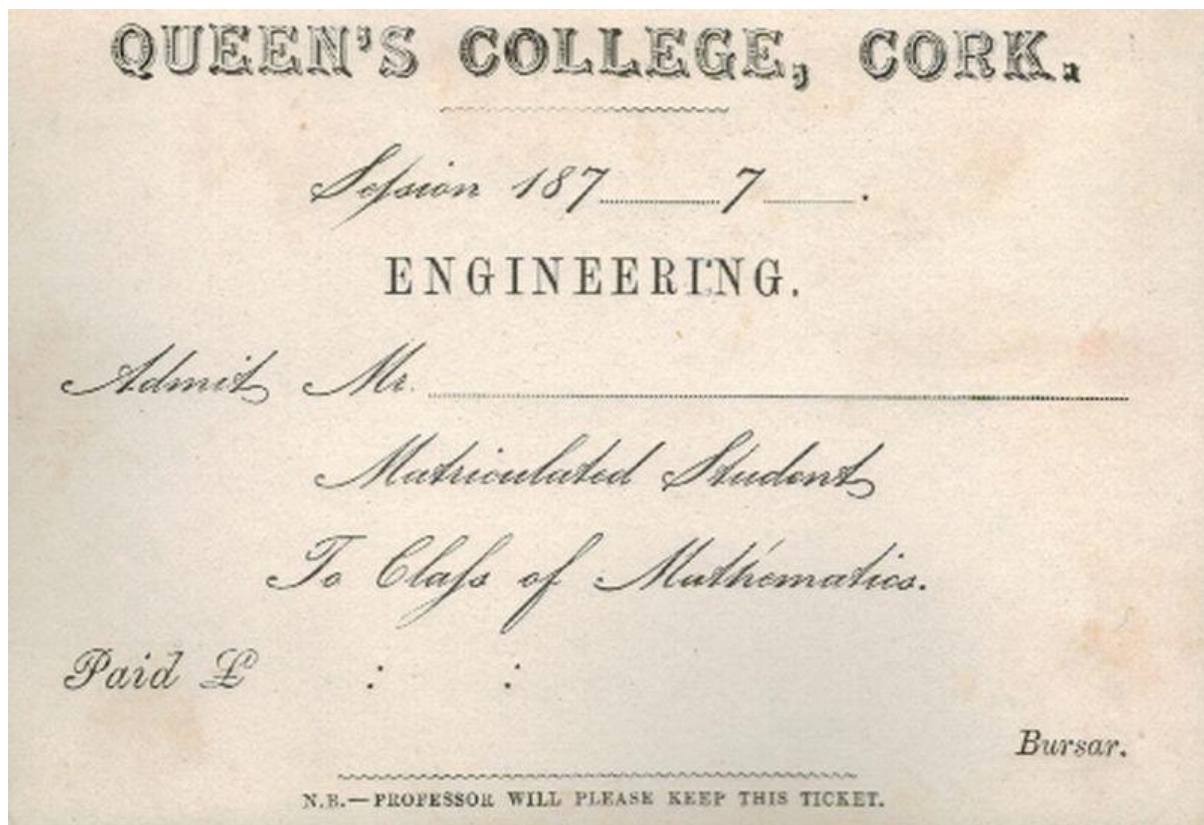 QUEEN'S COLLEGE, CORK.
Seſsion 187........7........
ENGINEERING.
Admit Mr. ........................
Matriculated Student
To Claſs of Mathematics.
Paid £ : :
Bursar.
N.B.—PROFESSOR WILL PLEASE KEEP THIS TICKET.